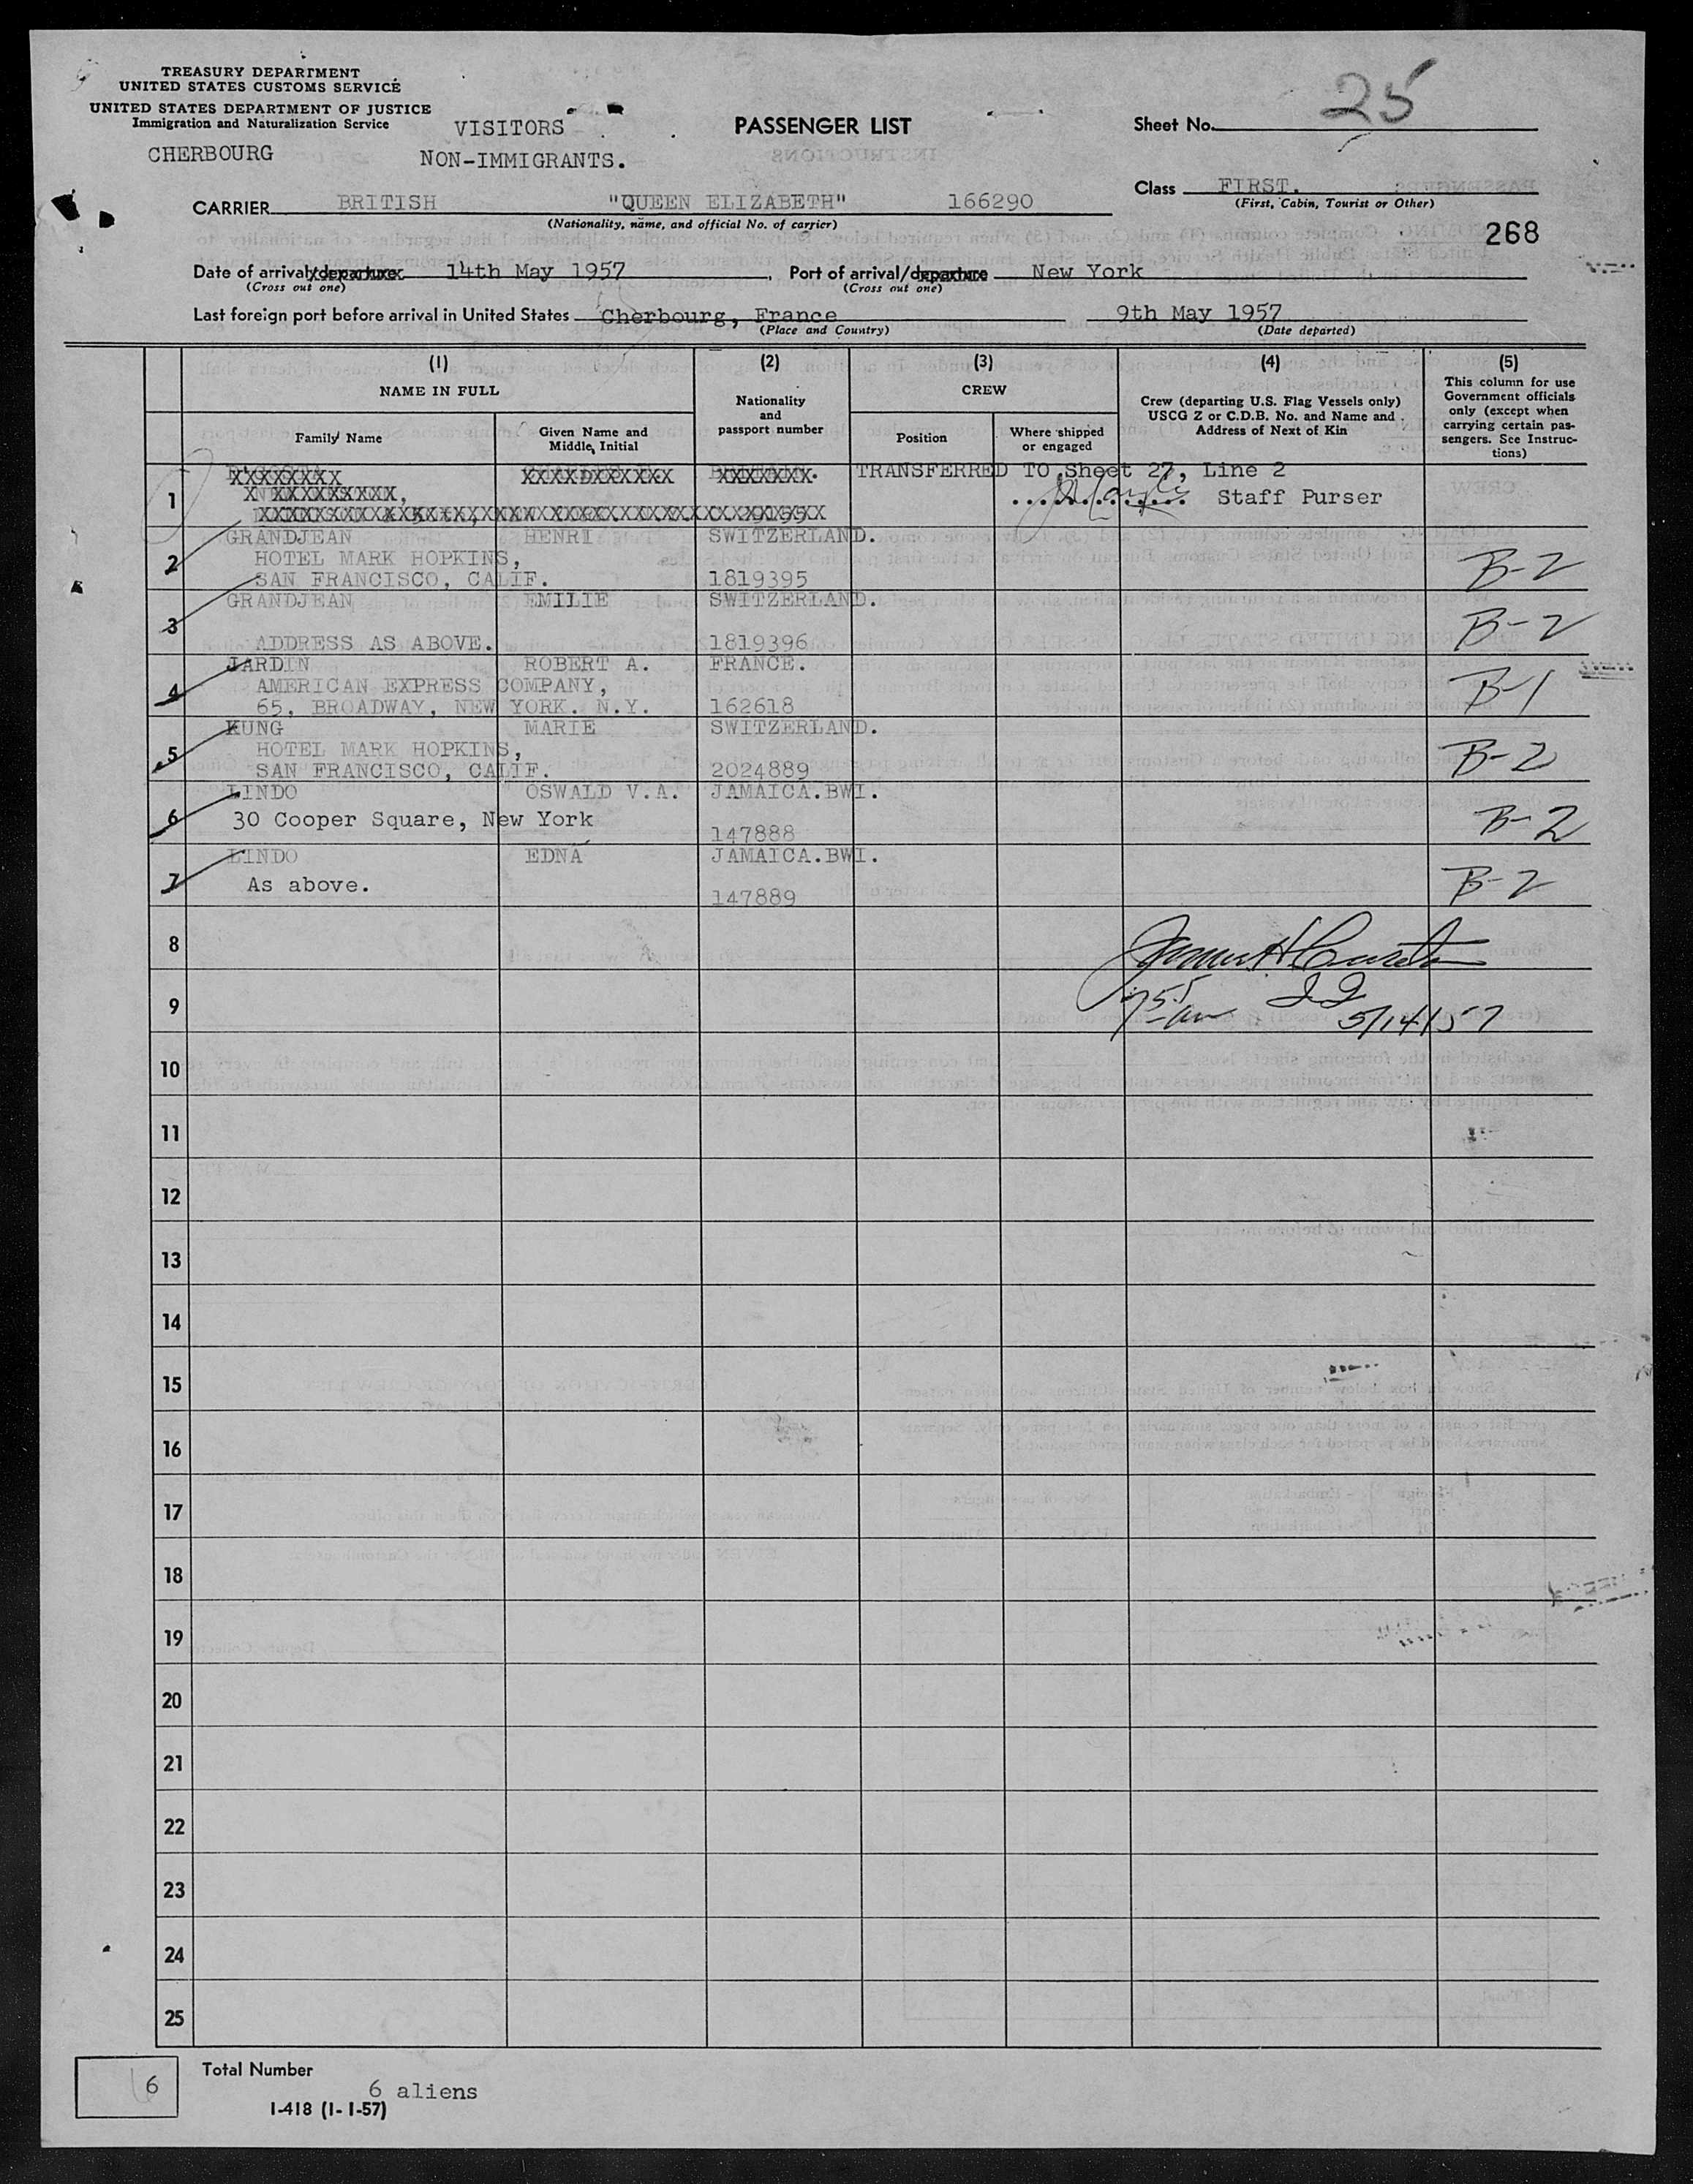 TREASURY DEPARTMENT
UNITED STATES CUSTOMS SERVICE
UNITED STATES DEPARTMENT OF JUSTICE
Immigration and Naturalization Service
VISITORS
PASSENGER LIST
Sheet No. 25
CHERBOURG
NON-IMMIGRANTS.
Class FIRST.
(First, Cabin, Tourist or Other)
CARRIER BRITISH "QUEEN ELIZABETH" 166290
(Nationality, name, and official No. of carrier)
268
Date of arrival/departure 14th May 1957, Port of arrival/departure New York
(Cross out one) (Cross out one)
Last foreign port before arrival in United States Cherbourg, France 9th May 1957
(Place and Country) (Date departed)
(1) (2) (3) (4) (5)
NAME IN FULL
Family Name
Given Name and Middle Initial
Nationality and passport number
CREW
Position
Where shipped or engaged
Crew (departing U.S. Flag Vessels only) USCG Z or C.D.B. No. and Name and Address of Next of Kin
This column for use Government officials only (except when carrying certain passengers. See Instructions)
1 TRANSFERRED TO Sheet 27, Line 2
Staff Purser
2 GRANDJEAN HENRI SWITZERLAND.
HOTEL MARK HOPKINS,
SAN FRANCISCO, CALIF. 1819395 B-2
3 GRANDJEAN EMILIE SWITZERLAND.
ADDRESS AS ABOVE. 1819396 B-2
4 JARDIN ROBERT A. FRANCE.
AMERICAN EXPRESS COMPANY,
65, BROADWAY, NEW YORK. N.Y. 162618 B-1
5 KUNG MARIE SWITZERLAND.
HOTEL MARK HOPKINS,
SAN FRANCISCO, CALIF. 2024889 B-2
6 LINDO OSWALD V.A. JAMAICA.BWI.
30 Cooper Square, New York
147888 B-2
7 LINDO EDNA JAMAICA.BWI.
As above.
147889 B-2
8
9 5/14/57
10
11
12
13
14
15
16
17
18
19
20
21
22
23
24
25
6
Total Number
6 aliens
I-418 (1-1-57)